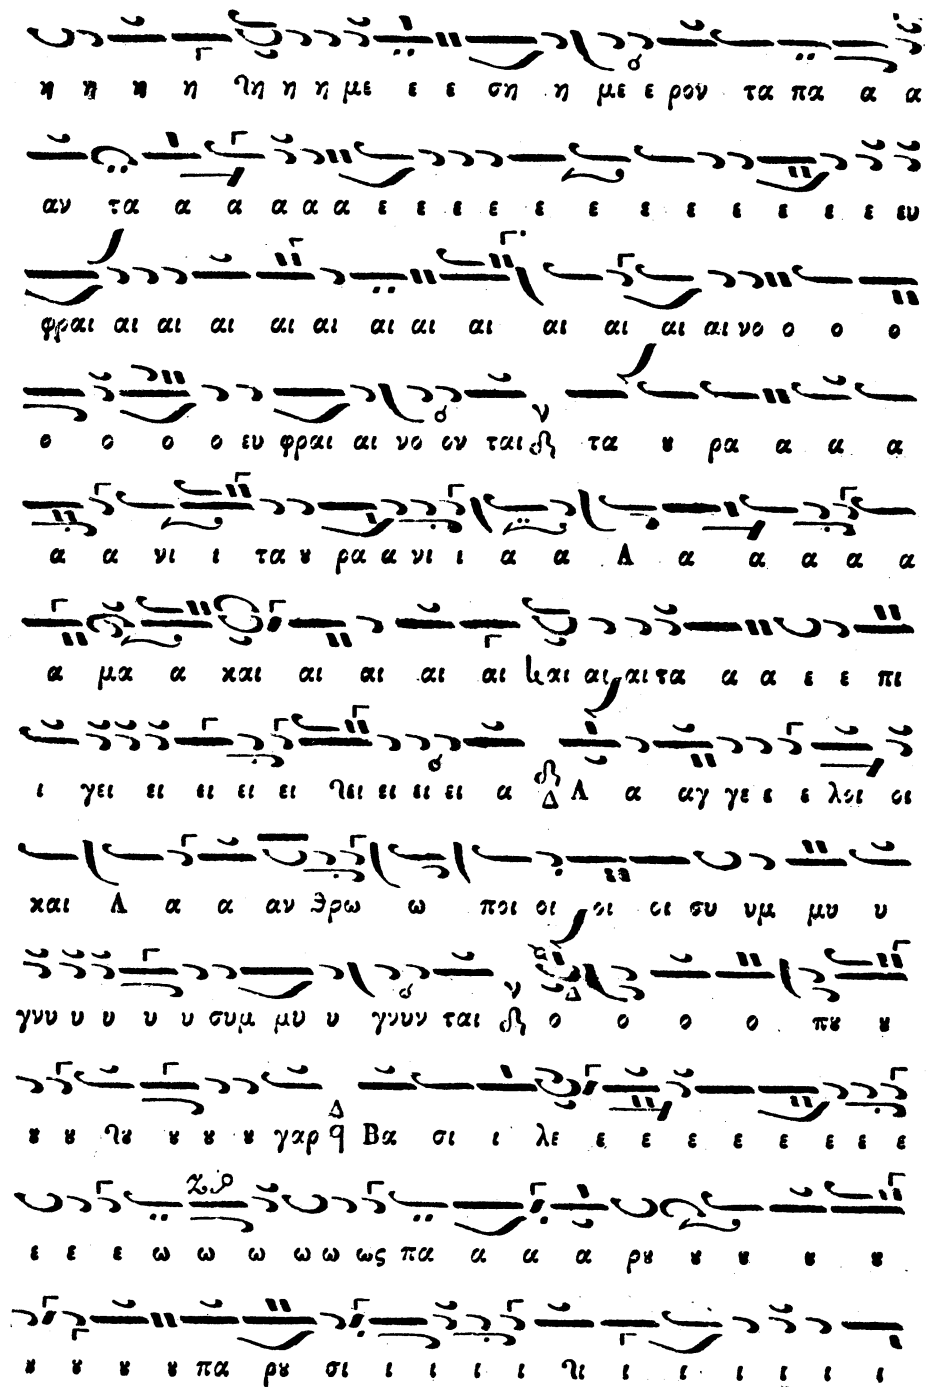 η η η η ϡη η η με ε ε ση η με ε ρον τα πα α α
αν τα α α α α α ε ε ε ε ε ε ε ε ε ε ε ε ευ
φραι αι αι αι αι αι αι αι αι αι αι αι αι νο ο ο ο
ο ο ο ο ευ φραι αι νο ον ται τα ȣ ρα α α α
α α νι ι τα ȣ ρα α νι ι α α Α α α α α α
α μα α και αι αι αι αι και αι αι τα α α ε ε πι
ι γει ει ει ει ει ϡει ει ει ει α Δ Α α αγ γε ε ε λοι οι
και Α α α αν θρω ω ποι οι οι οι συ υμ μυ υ
γνυ υ υ υ υ συμ μυ υ γνυν ται ο ο ο ο πȣ ȣ
ȣ ȣ ϡȣ ȣ ȣ ȣ γαρ Βα σι ι λε ε ε ε ε ε ε ε ε
ε ε ε ω ω ω ω ω ως πα α α α ρȣ ȣ ȣ ȣ ȣ
ȣ ȣ ȣ ȣ πα ρȣ σι ι ι ι ι ϡι ι ι ι ι ι ι